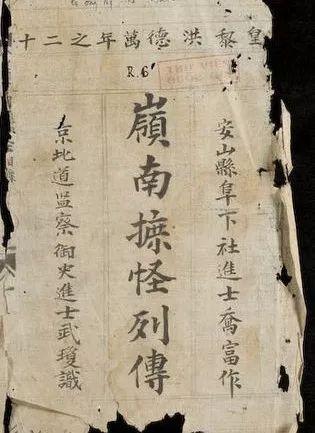 皇黎洪德萬年之二十
R.6
安山縣阜下社進士喬富作
嶺南摭怪列傳
京北道监察御史進士武瓊識